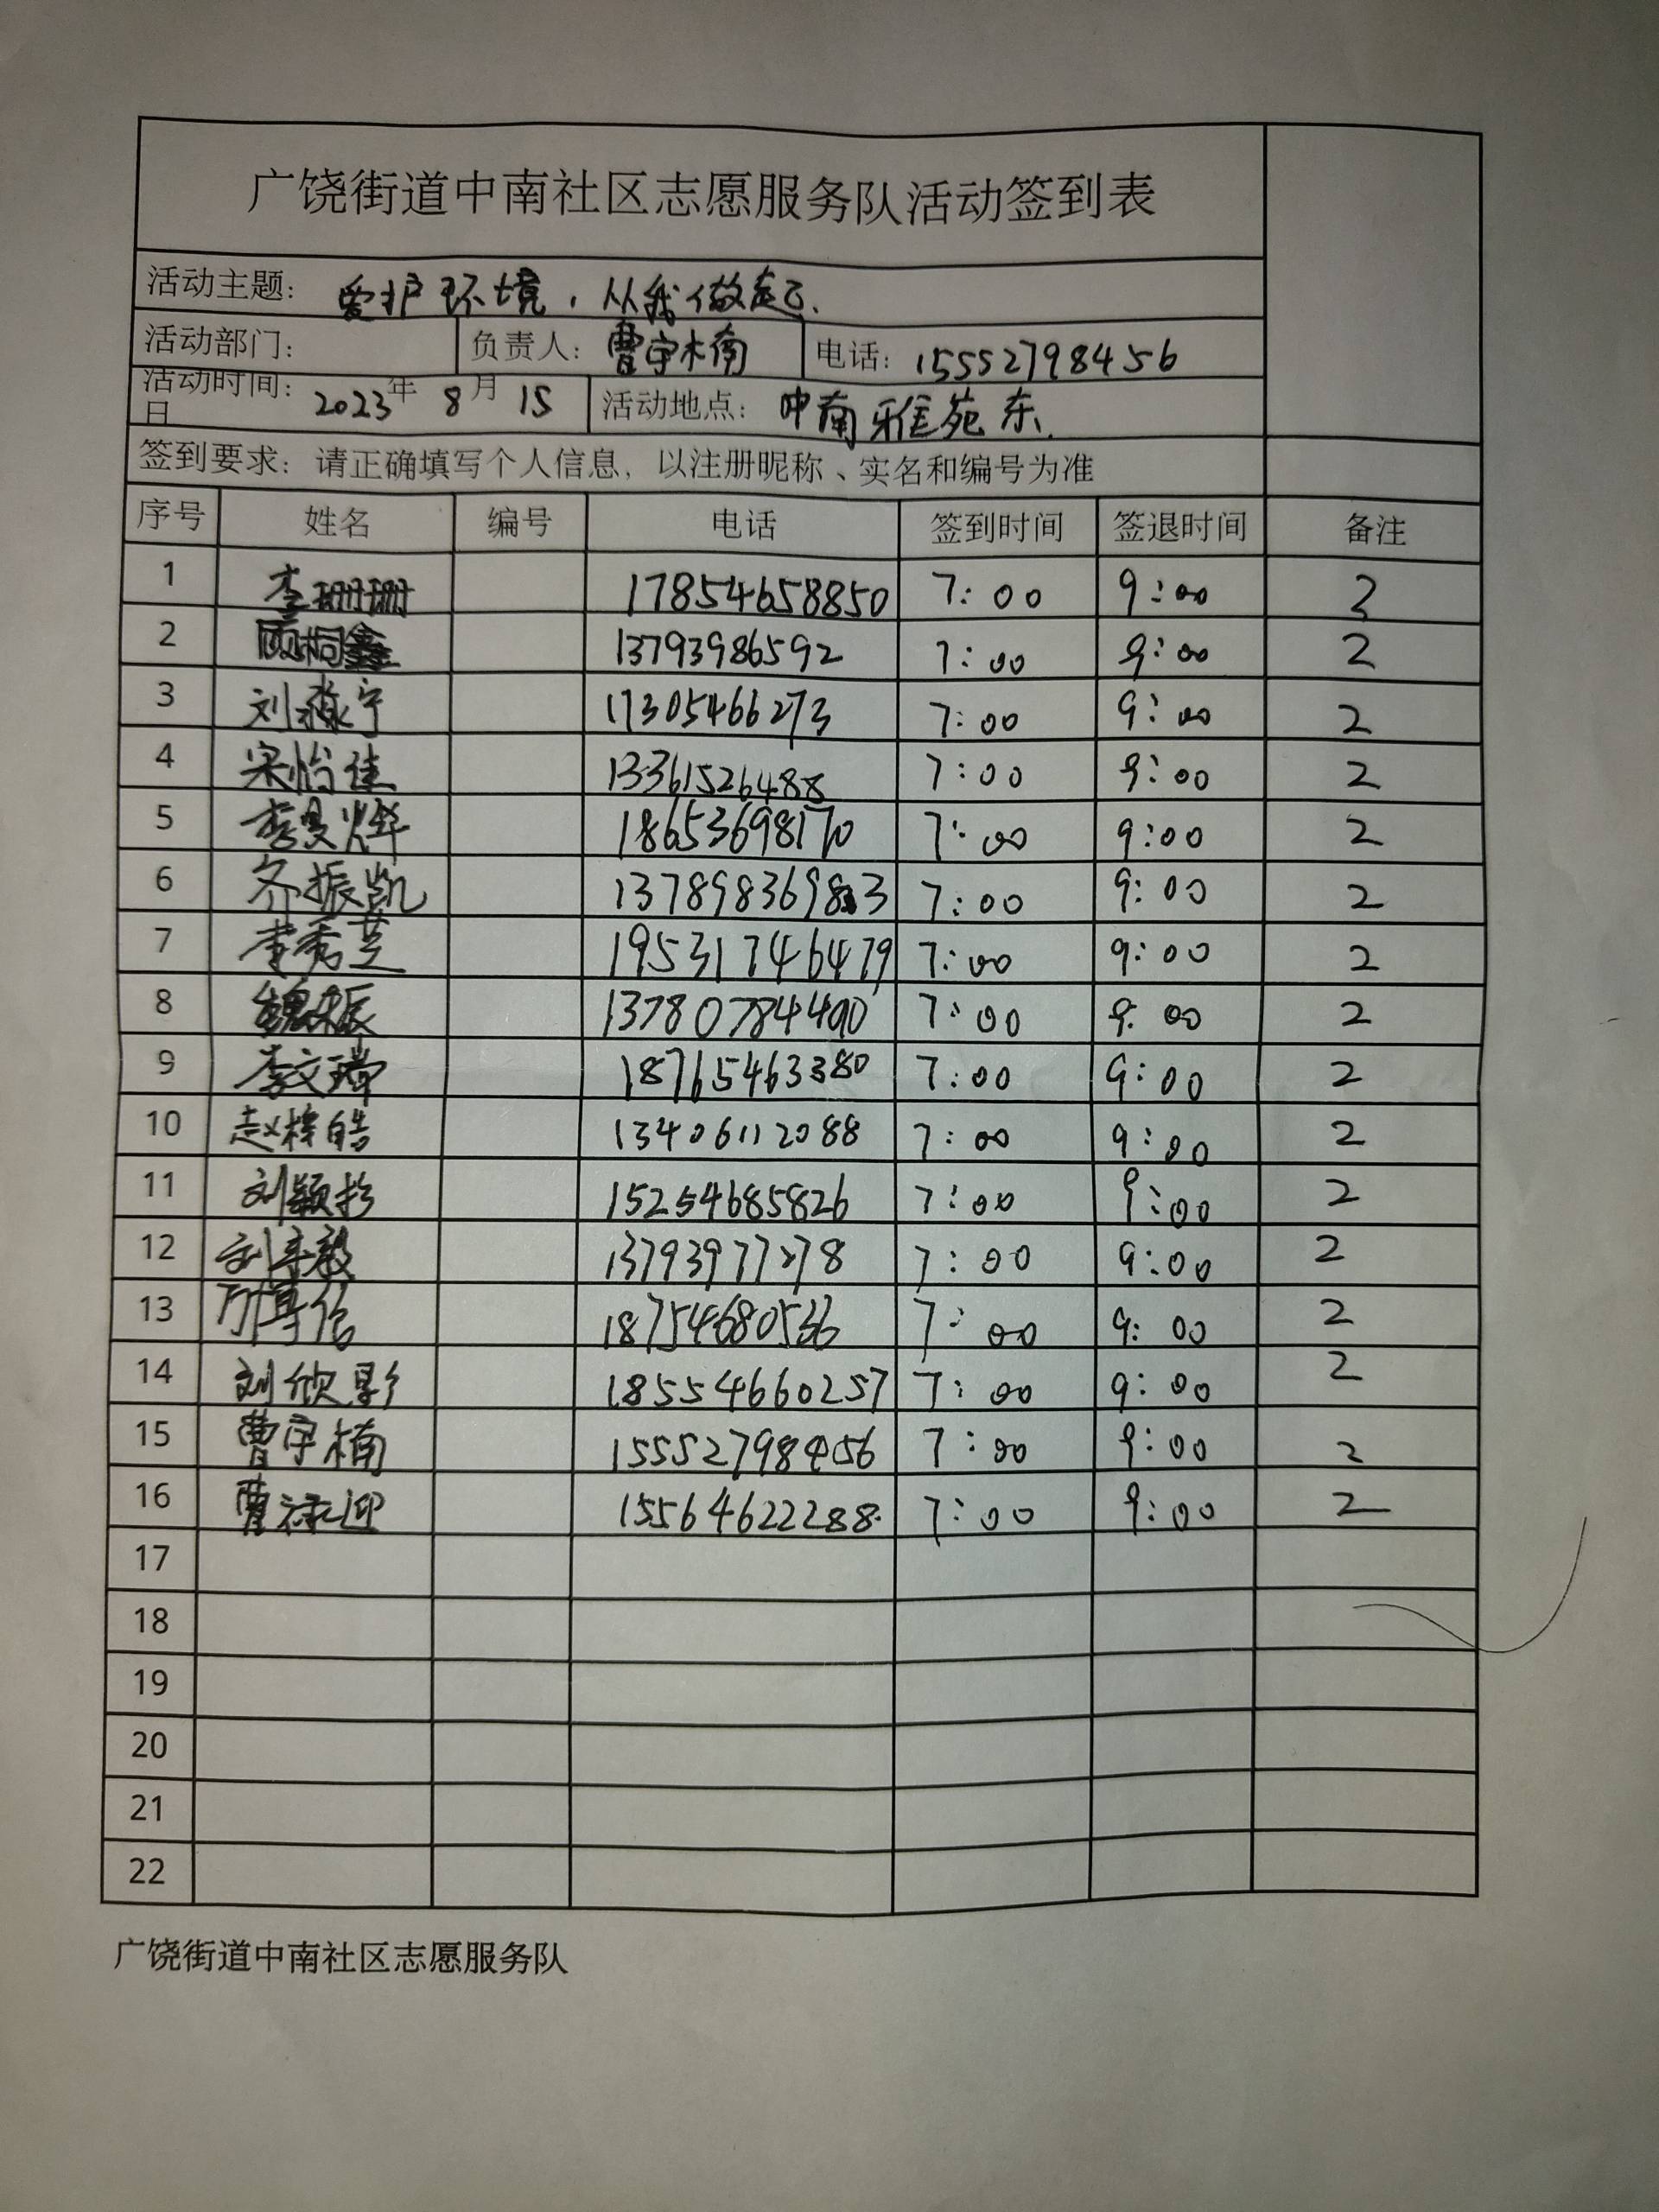 广饶街道中南社区志愿服务队活动签到表
活动主题： 爱护环境，从我做起.
活动部门： 负责人：曹宇楠 电话：15552798456
活动时间：2023年 8月 15日 活动地点：中南雅苑东.
签到要求：请正确填写个人信息，以注册昵称、实名和编号为准
序号 姓名 编号 电话 签到时间 签退时间 备注
1 李珊珊 17854658850 7:00 9:00 2
2 顾桐鑫 13793986592 7:00 9:00 2
3 刘淼宁 17305466273 7:00 9:00 2
4 宋怡佳 13361526488 7:00 9:00 2
5 李昊烨 18653698170 7:00 9:00 2
6 齐振凯 7:00 9:00 2
7 李秀芝 19531746479 7:00 9:00 2
8 13780784490 7:00 9:00 2
9 李文瑞 18765463380 7:00 9:00 2
10 赵梓皓 13406112088 7:00 9:00 2
11 刘颖杉 15254685826 7:00 9:00 2
12 13793977278 7:00 9:00 2
13 18754680536 7:00 9:00 2
14 刘欣影 18554660257 7:00 9:00 2
15 曹宇楠 15552798456 7:00 9:00 2
16 曹禄迎 15564622288. 7:00 9:00 2
17
18
19
20
21
22
广饶街道中南社区志愿服务队